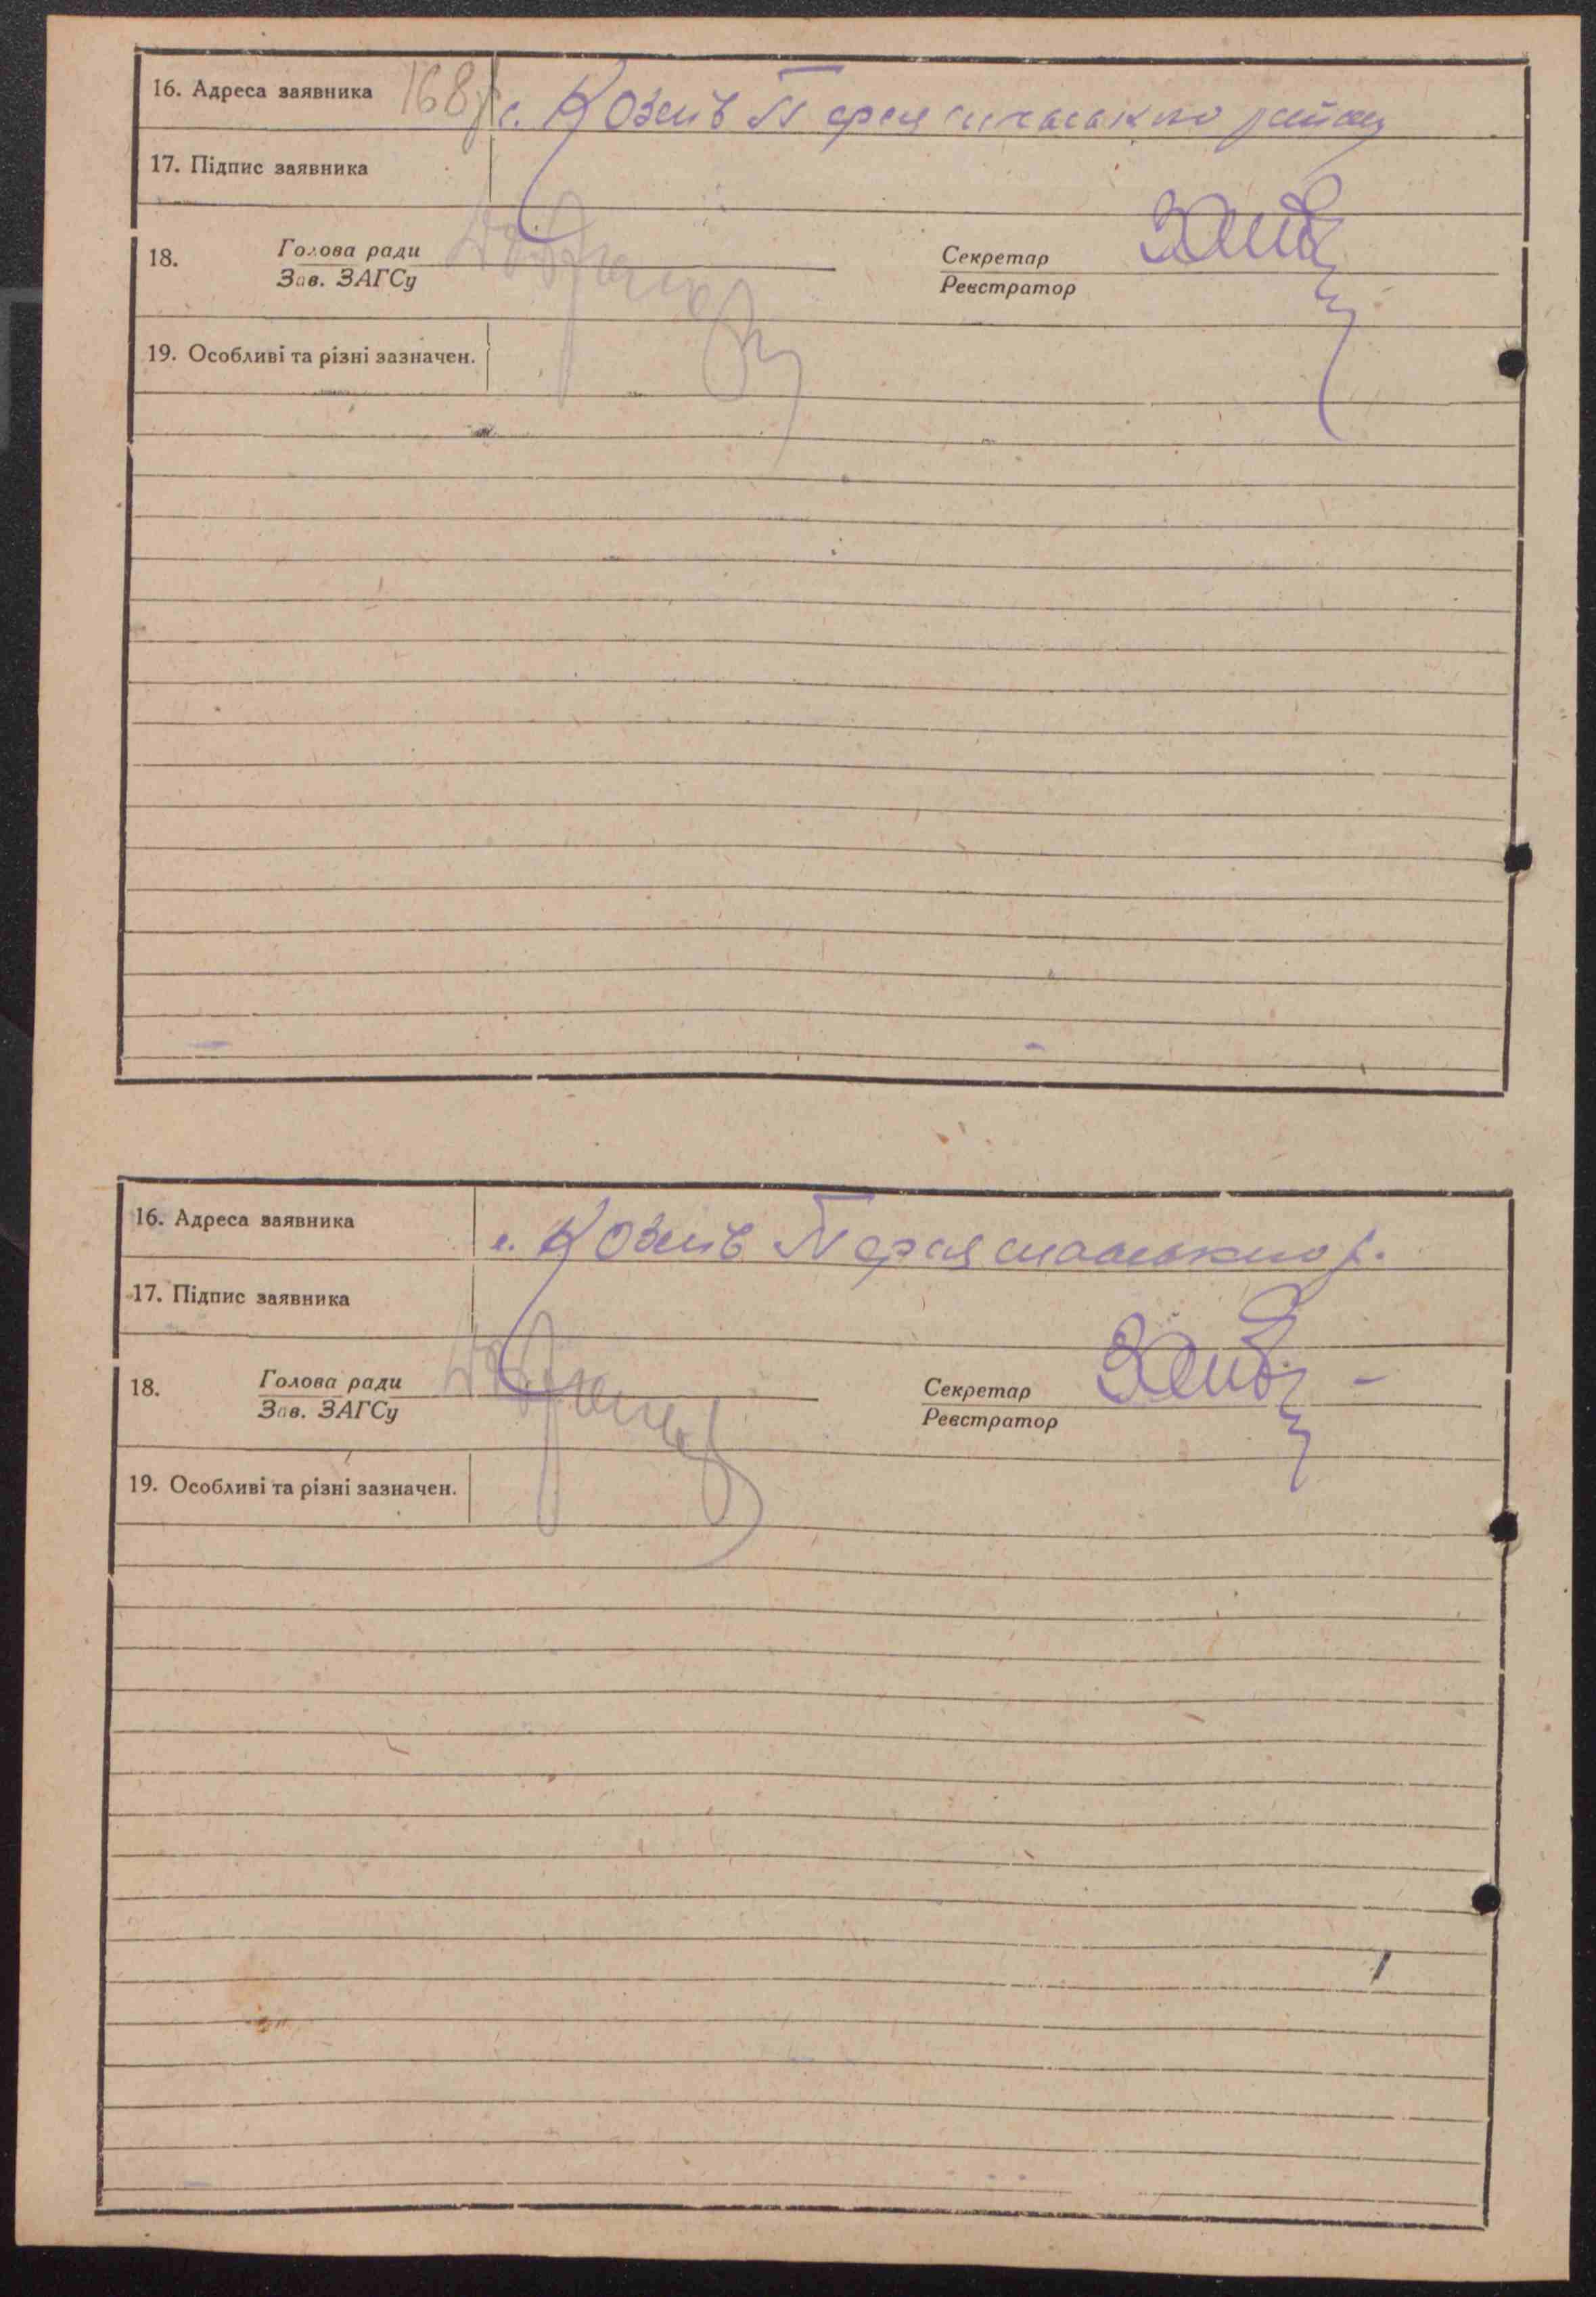 16. Адреса заявника 168 с. Козлів Переяславського району
17. Підпис заявника
18. Голова ради Секретар
Зав. ЗАГСу Реєстратор
19. Особливі та різні зазначен.
16. Адреса заявника с. Козлів Переяславського р.
17. Підпис заявника
18. Голова ради Секретар
Зав. ЗАГСу Реєстратор
19. Особливі та різні зазначен.